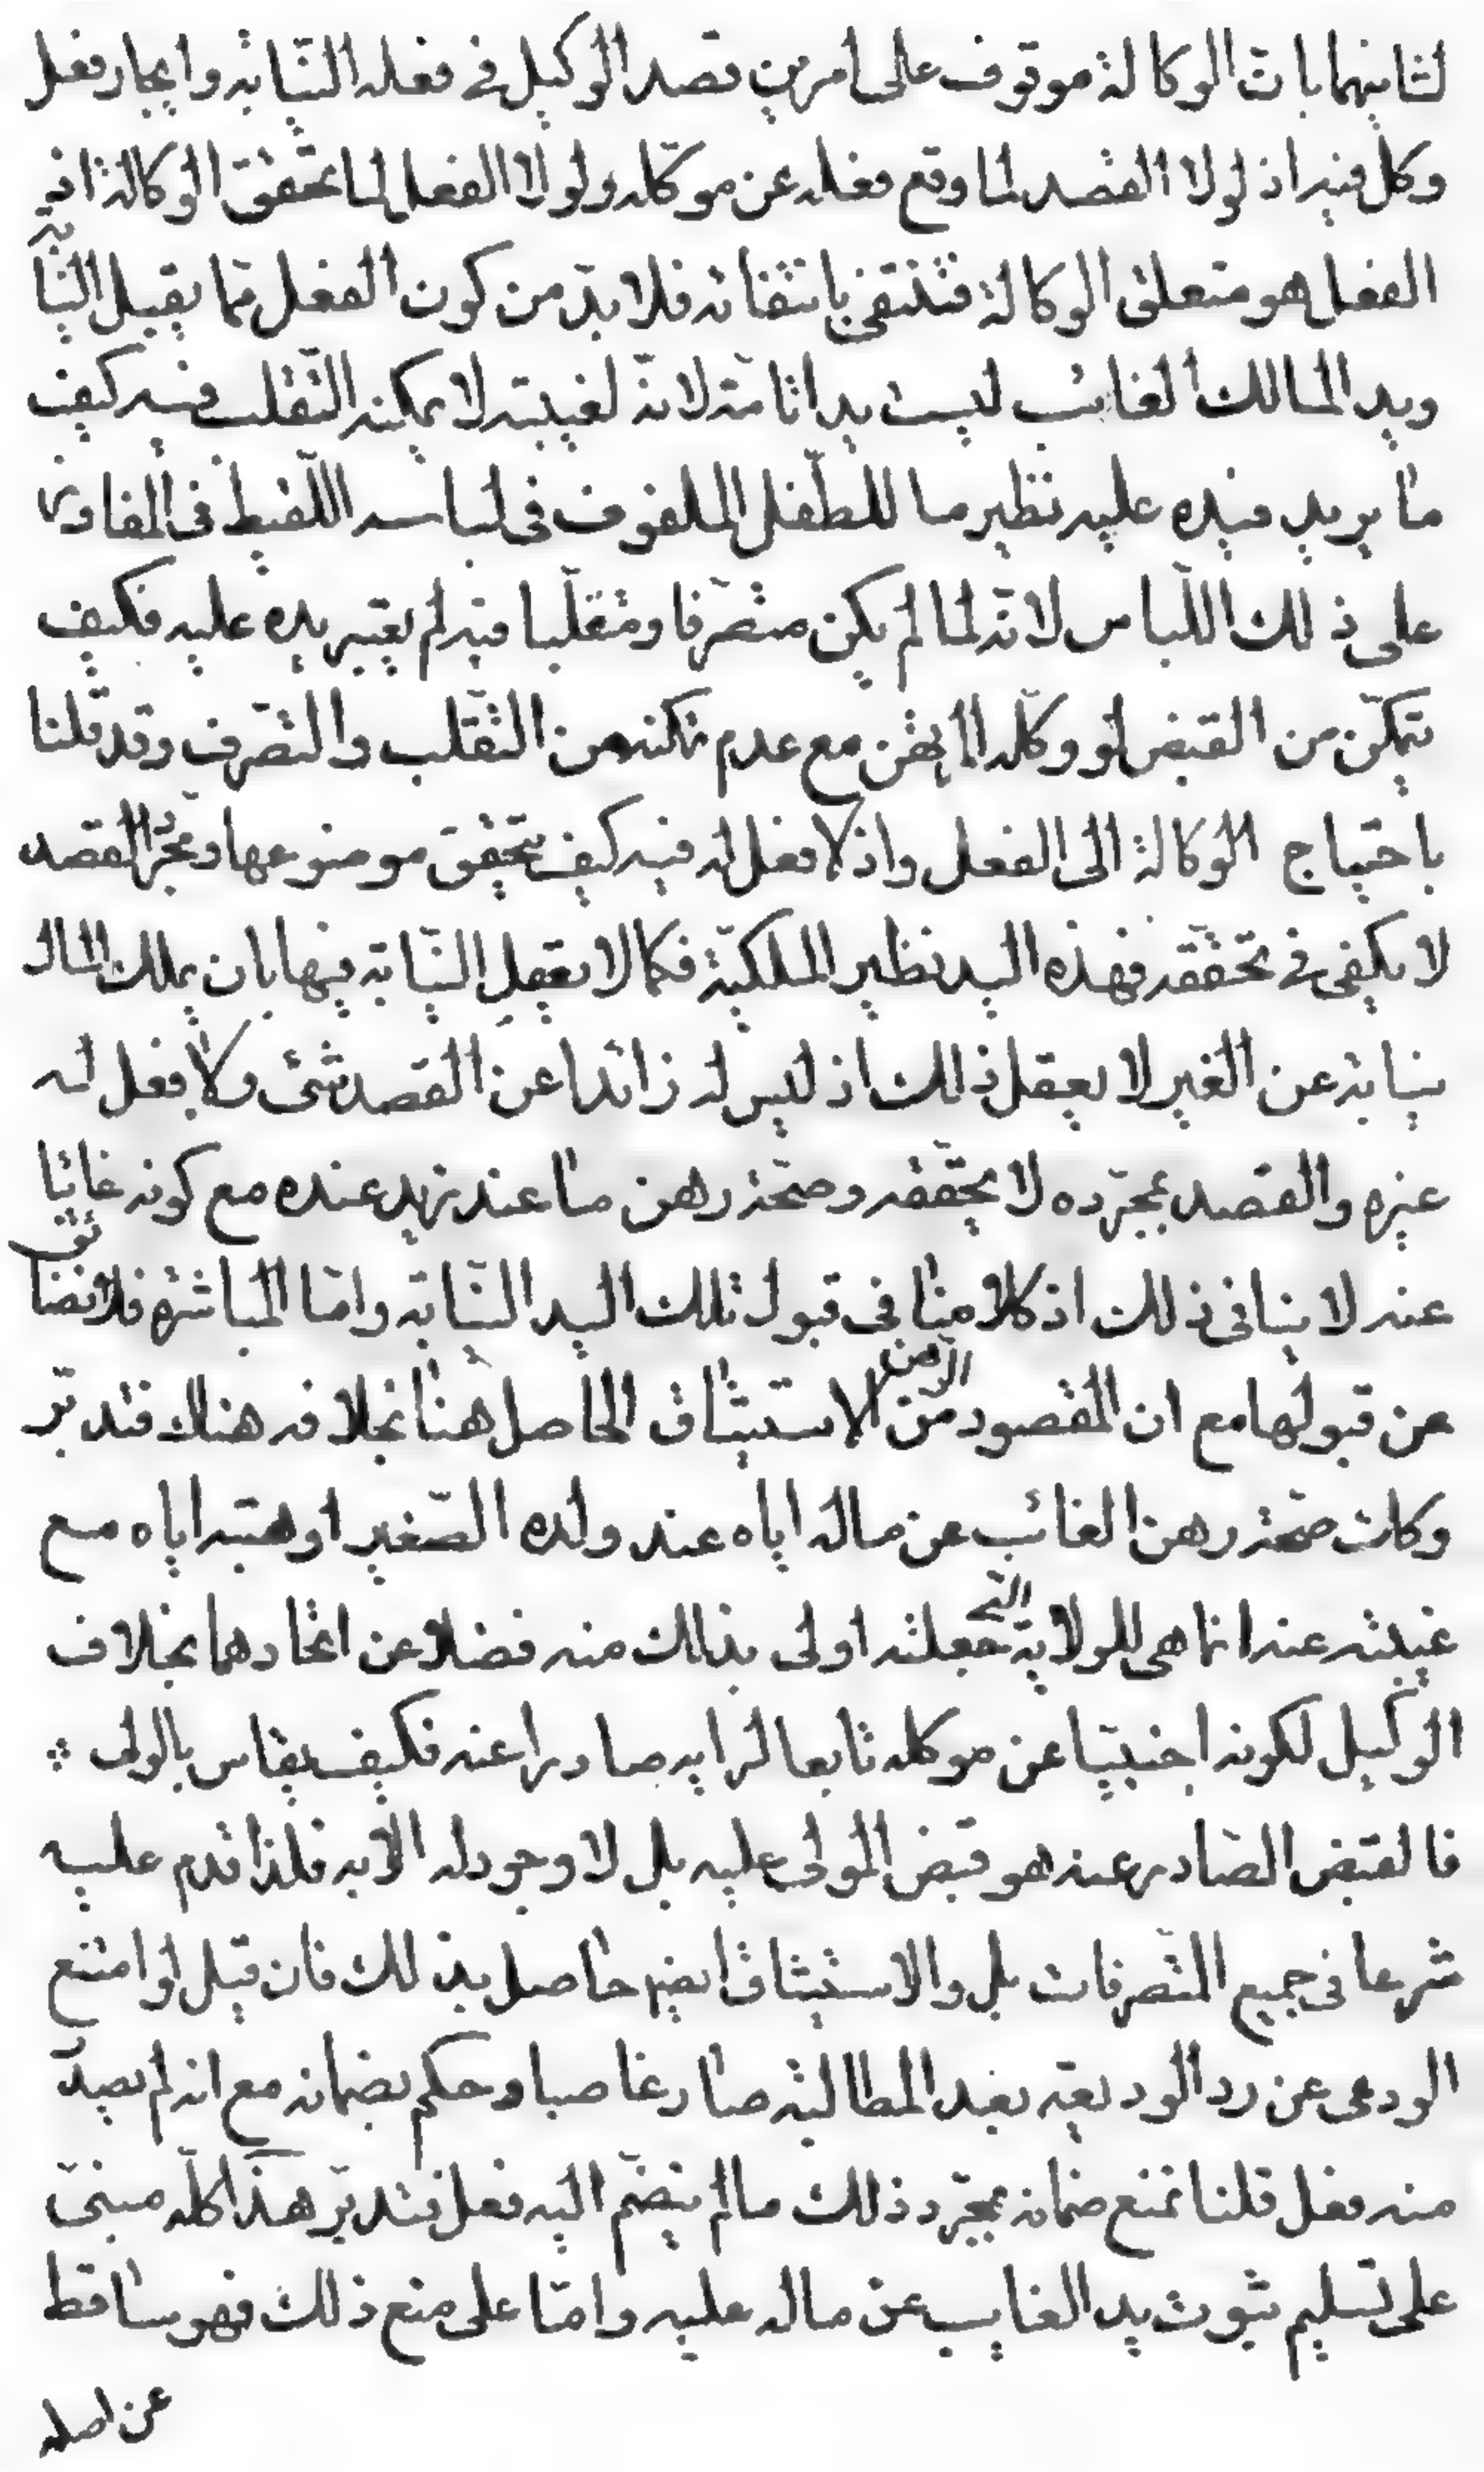 لثانيهما بان الوكالة موقوف على امرين قصد الوكيل في فعله النّيابة وايجاد فعل
وكل فيه اذ لولا القصد لما وقع فعله عن موكّله ولولا الفعل لما تحقق الوكالة اذ
الفعل هو متعلق الوكالة فتنتفى بانتفائه فلا بدّ من كون الفعل ممّا يقبل النّيابة
ويد المالك الغائب ليست يدا تامّة لانّه لغيبته لا يمكنه التّقلب فيه كيف
ما يريد فيده عليه نظير ما للطّفل الملفوف في لباسه اللّقيط في المفاوز
على ذلك اللّباس لانّه لما لم يكن متصرّفا ومتقلّبا فيه لم يعتبر يده عليه فكيف
يتمكّن من القبض لو وكّله المرتهن مع عدم تمكنه من التّقلب والتصرّف وقد قلنا
باحتياج الوكالة الى الفعل واذ لا فعل له فيه كيف يتحقّق موضوعها ومجرّد القصد
لا يكفى في تحقّقه فهذه اليد نظير الملكيّة فكما لا يعقل النّيابة فيها بان يملك المال
نيابة عن الغير لا يعقل ذلك اذ ليس له زائدا عن القصد شئ ولا فعل له
غيره والقصد بمجرّده لا يحقّقه وصحّة رهن ما عند زيد عنده مع كونه غائبا
عنه لا ينافى ذلك اذ كلامنا في قبول تلك اليد النّيابة وامّا المباشرة فلا تضائق
عن قبولها مع ان المقصود من الرّهن الاستيثاق الحاصل هنا بخلافه هناك فتدبّر
وكانت صحّة رهن الغائب عن ماله اياه عند ولده الصّغير او هبته اياه مع
غيبته عنه انما هى للولاية الّتى جعلته اولى بذالك منه فضلا عن اتحادهما بخلاف
الوكيل لكونه اجنبيّا عن موكله تابعا لرايه صادرا عنه فكيف يقاس بالولى
فالقبض الصّادر عنه هو قبض المولى عليه بل لا وجود له الا به فلذا قدم عليه
شرعا في جميع التّصرفات بل والاستيثاق ايضا حاصل بذلك فان قيل لو امتنع
الودعى عن رد الوديعة بعد المطالبة صار غاصبا وحكم بضمانه مع انه لم يصدر
منه فعل قلنا نمنع ضمانه بمجرّد ذلك ما لم ينضمّ اليه فعل فتدبّر هذا كلّه مبنىّ
على تسليم ثبوت يد الغايب عن ماله عليه وامّا على منع ذلك فهو ساقط
عن اصله